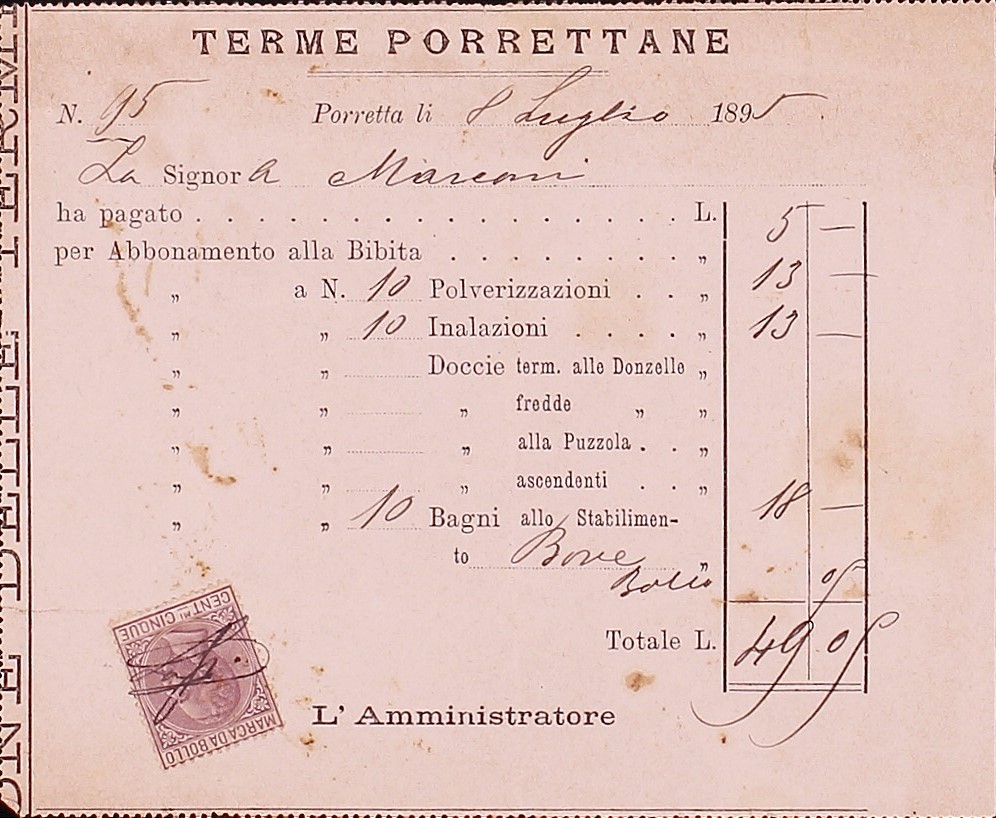 TERME PORRETTANE
N. 95 Porretta li 8 Luglio 1895
La Signora Marconi
ha pagato . . . . . . . . . . . . . . . . . L. 5 —
per Abbonamento alla Bibita . . . . . . . . . „ 13 —
„ a N. 10 Polverizzazioni . . „ 13 —
„ „ 10 Inalazioni . . . . „
„ „ Doccie term. alle Donzelle „
„ „ „ fredde „ „
„ „ „ alla Puzzola . . „
„ „ „ ascendenti . . „
„ „ 10 Bagni allo Stabilimen- 18 —
to Bove „
Bollo 05
Totale L. 49.05
CENT.MI CINQUE
MARCA DA BOLLO
L' Amministratore